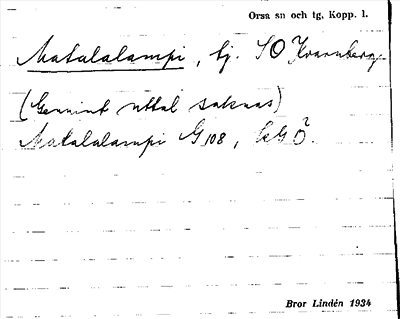 Orsa sn och tg, Kopp. l.
Matalalampi, tj. SO Kvarnberg.
(Genuint uttal saknas)
Matalalampi G 108, kG Ö.
Bror Lindén 1934